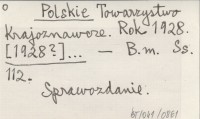 Polskie Towarzystwo
Krajoznawcze. Rok 1928.
[1928?]... — B.m. Ss.
112.
Sprawozdanie.